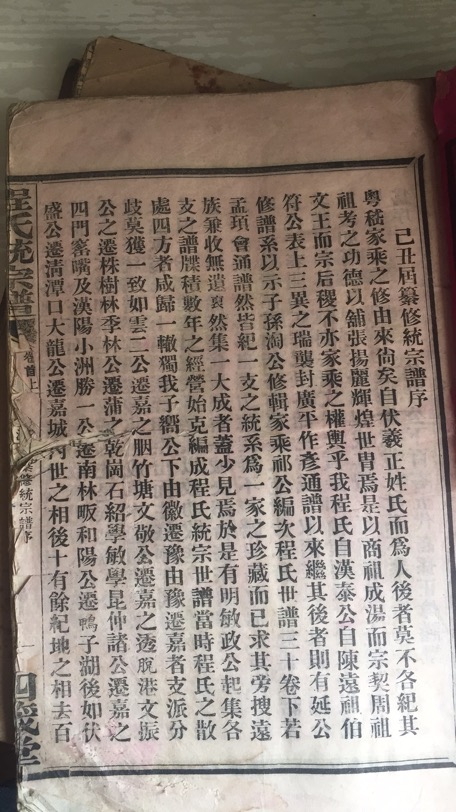 己丑屆纂修統宗譜序
粵嵇家乘之修由來尙矣自伏羲正姓氏而爲人後者莫不各紀其
祖考之功德以舖張揚麗輝煌世冑焉是以商祖成湯而宗契周祖
文王而宗后稷不亦家乘之權輿乎我程氏自漢泰公自陳遠祖伯
符公表上三異之瑞襲封廣平作彥通譜以來繼其後者則有延公
修譜系以示子孫淘公修輯家乘祁公編次程氏世譜三十卷下若
孟項會通譜然皆紀一支之統系爲一家之珍藏而已求其旁搜遠
族兼收無遺裒然集一大成者蓋少見焉於是有明敏政公起集各
支之譜牒積數年之經營始克編成程氏統宗世譜當時程氏之散
處四方者咸歸一轍獨我子嚮公下由徽遷豫由豫遷嘉者支派分
歧莫獲一致如雲二公遷嘉之胭竹塘文敬公遷嘉之透脫港文振
公之遷株樹林季林公遷蒲之乾崗石紹學敏學昆仲諸公遷嘉之
四門窰嘴及漢陽小洲勝一公遷南林畈和陽公遷鴨子湖後如伏
盛公遷淸潭口大龍公遷嘉城河世之相後十有餘紀地之相去百
程氏統宗譜
卷首上
修統宗譜序
一